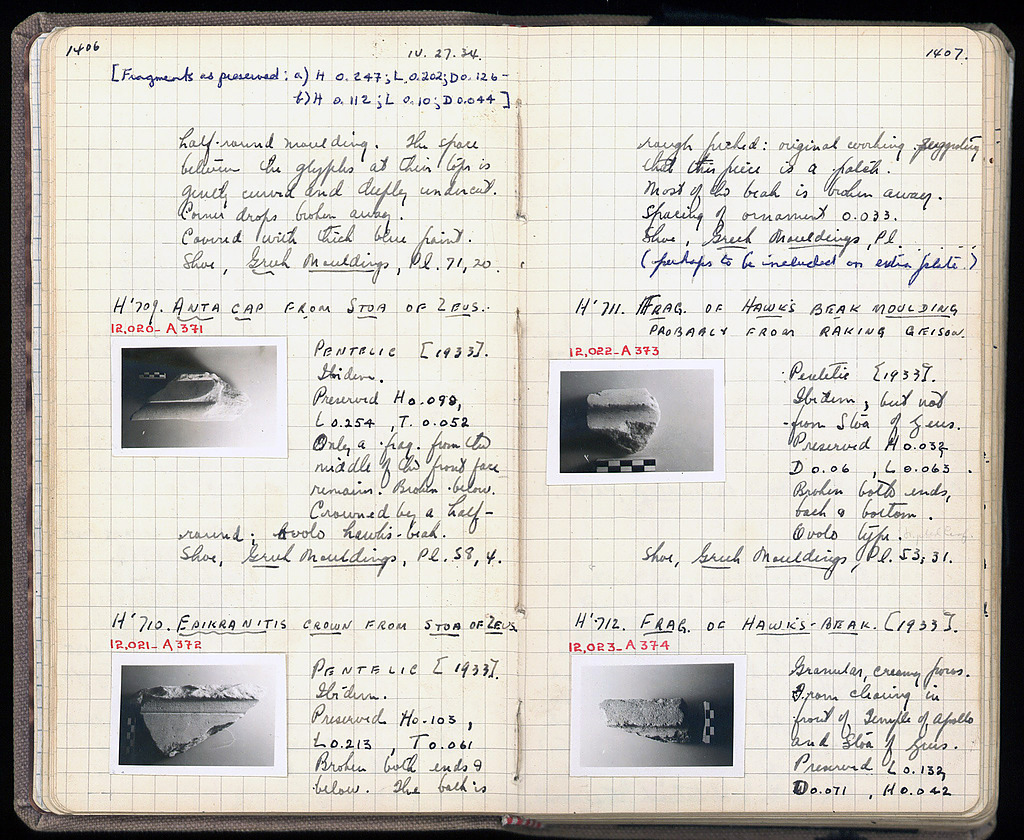 1406
IV. 27.34.
[Fragments as preserved: a) H 0.247; L 0.202; D 0.126-
b) H 0.112; L 0.10; D 0.044]
half-round moulding. The space
between the glyphs at their tops is
gently curved and deeply undercut.
Corner drops broken away.
Covered with thick blue paint.
Shoe, Greek Mouldings, Pl. 71, 20.
H'709. ANTA CAP FROM STOA OF ZEUS.
12,020-A371
PENTELIC [1933].
Ibidem.
Preserved H 0.098,
L 0.254, T. 0.052
Only a frag. from the
middle of the front face
remains. Broken below.
Crowned by a half-
round; Ovolo hawks-beak.
Shoe, Greek Mouldings, Pl. 58, 4.
H'710. EPIKRANITIS CROWN FROM STOA OF ZEUS.
12,021-A372
PENTELIC [1933].
Ibidem.
Preserved H 0.103,
L 0.213, T 0.061
Broken both ends &
below. The back is
1407.
rough picked: original working suggesting
that this piece is a patch.
Most of the beak is broken away.
Spacing of ornament 0.033.
Shoe, Greek Mouldings, Pl. .........
(perhaps to be included on extra plate.)
H'711. FRAG. OF HAWKS BEAK MOULDING
PROBABLY FROM RAKING GEISON.
12,022-A373
Pentelic [1933].
Ibidem, but not
from Stoa of Zeus.
Preserved H 0.032,
D 0.06, L 0.063.
Broken both ends,
back & bottom.
Ovolo type.
Shoe, Greek Mouldings, Pl. 53; 31.
H'712. FRAG. OF HAWKS-BEAK. [1933].
12,023-A374
Granular, creamy poros.
From clearing in
front of Temple of Apollo
and Stoa of Zeus.
Preserved L 0.132,
D 0.071, H 0.042